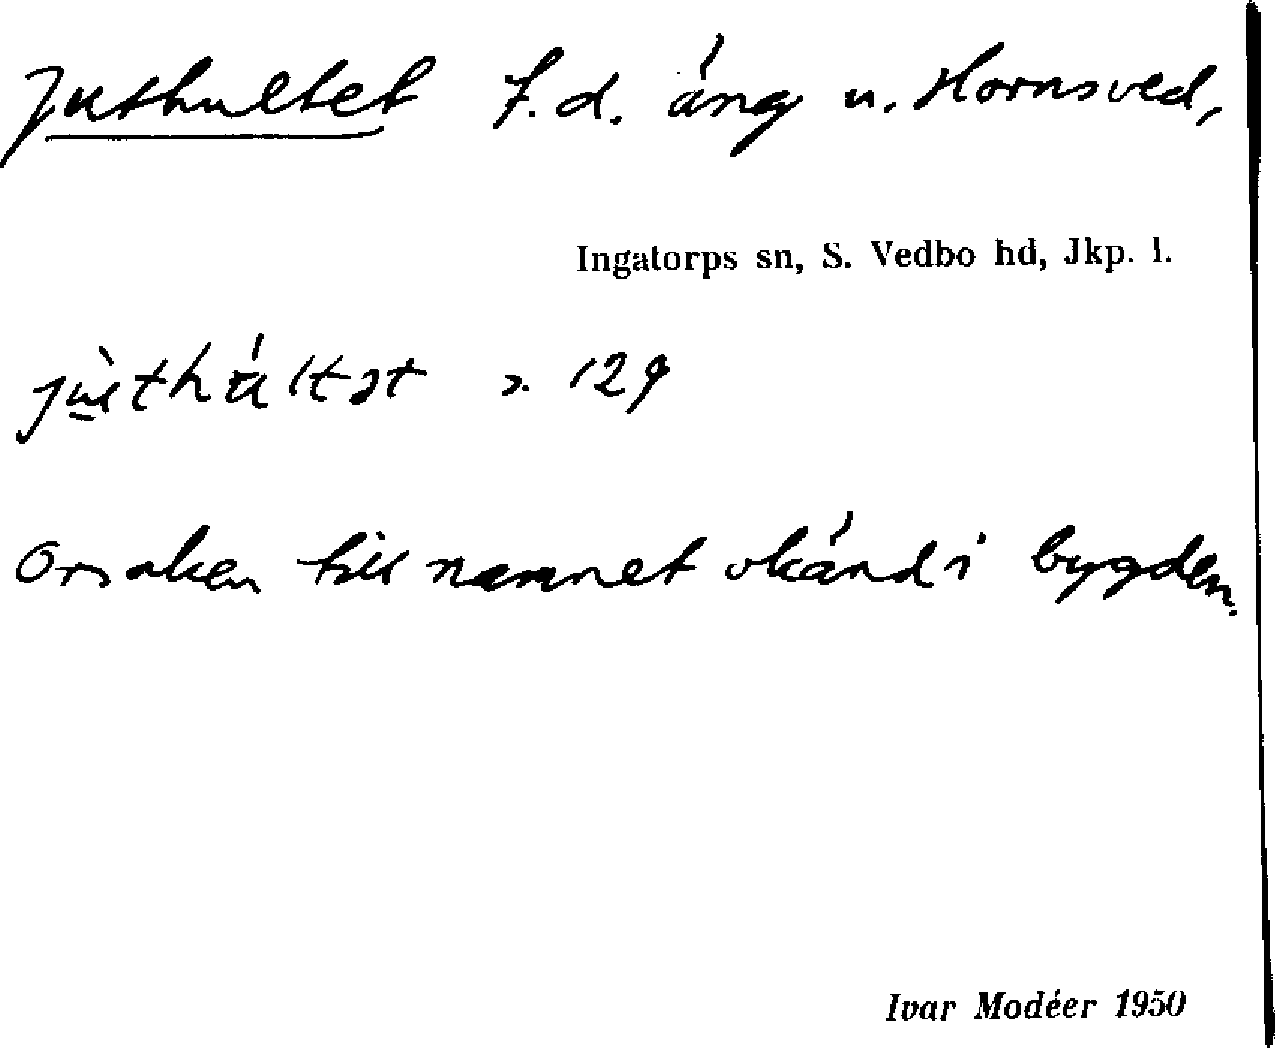 Juthultet f.d. äng u. Hornsved,
Ingatorps sn, S. Vedbo hd, Jkp. l.
jùthúltət s. 129
Orsaken till namnet okänd i bygden.
Ivar Modéer 1950